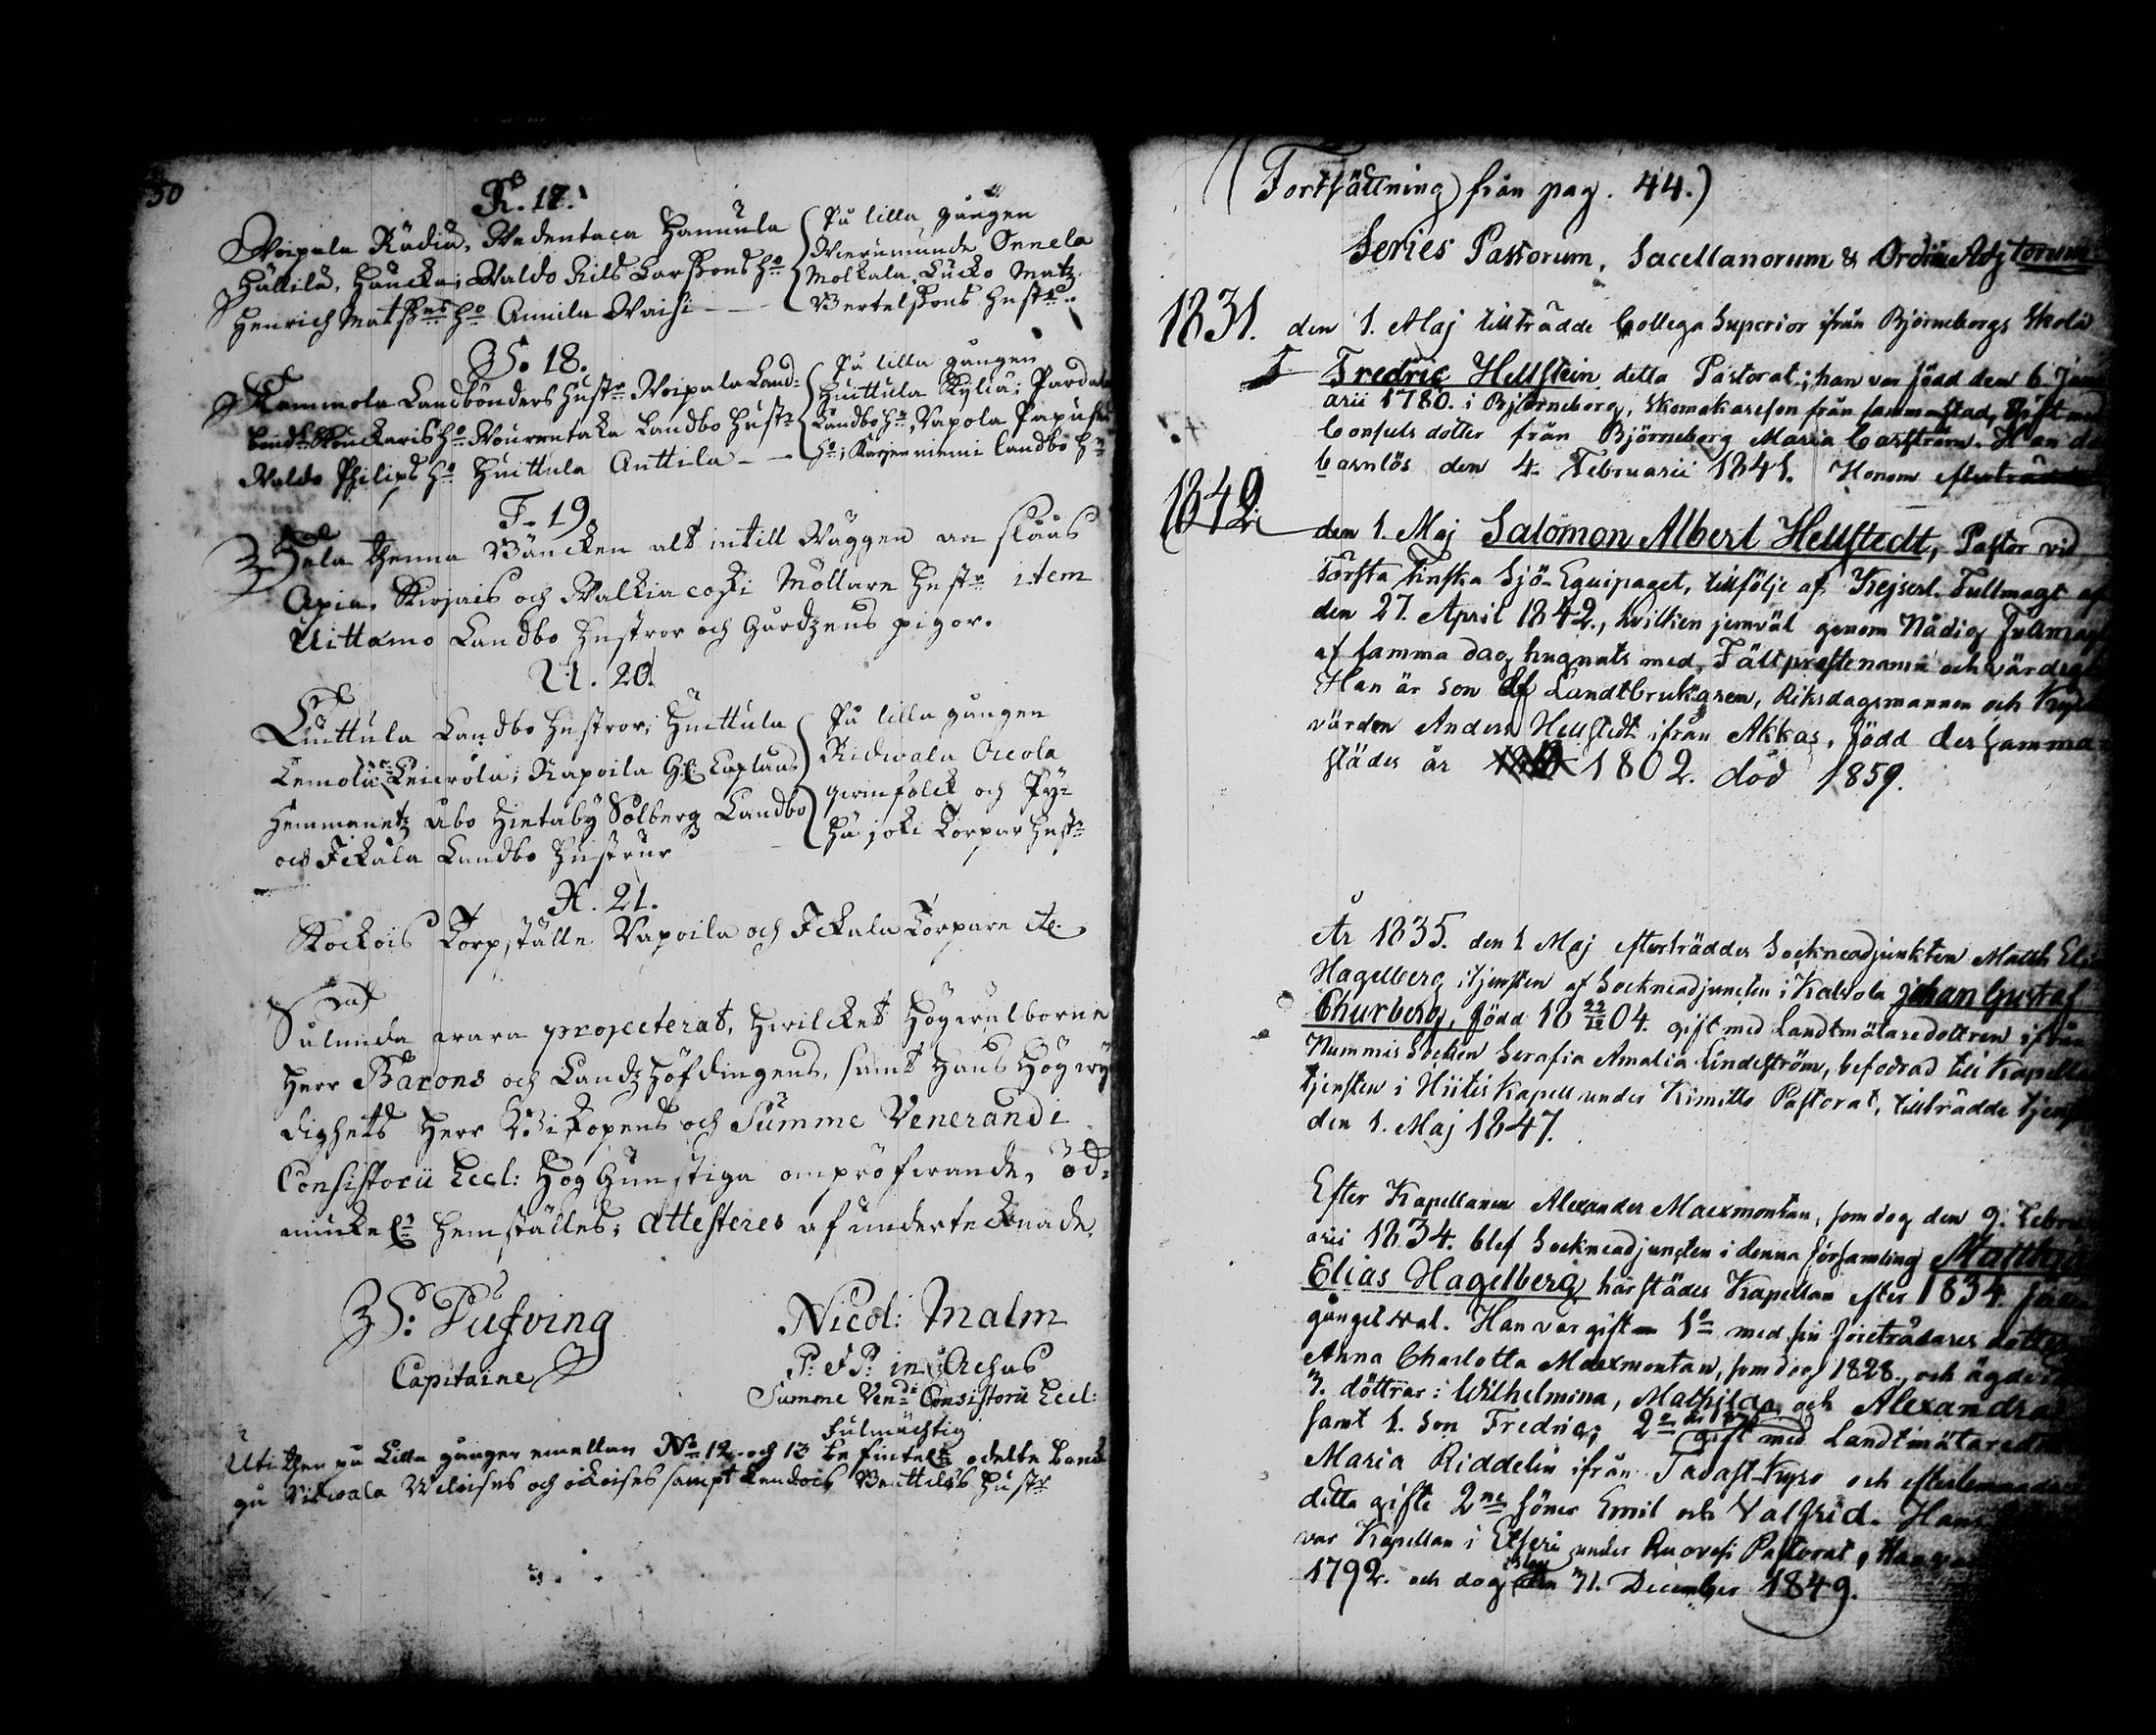 50
R. 17.
Woipala Rådiä, Wedentaca Hannula
Hällilä, Haucka; Waldo Nils Larssons Ho
Henrich Matssns Ho Annila Waisi
På lilla gången
Wierumunde Onnela
Molkala Lucko Matz
Bertelssons Hustr.
S. 18.
Rammola Landbönders Hustr Woipala Land-
bönd. Skuckaris Ho Nourentaka Landbo Hustr
Waldo Philips Ho Huittula Anttila
På lilla gången
Huittula Kylliä; Pardala
Landbo Hr, Vapola
Ho; Karjenniemi landbo Hr
T. 19.
Hela thenna Bäncken alt intill Wäggen
Apia, Skogais och Walkiacoski Möllare Hustr item
Uittamo Landbo Hustror och Gårdzens pigor.
U. 20.
Huittula Landbo Hustror; Huittula
Lemola Leieröla; Rapoila Gl. Caplans
Hemmanetz Åbo Hietaby Solberg Landbo
och Ickala Landbo Hustrur
På lilla gången
Ridwala Ocola
gwinfolck och Py-
häjoki Torpar Hustr
X. 21.
Skockois Torpställe Vapoila och Ickala Torpare etc.
Sålunda wara projecterat, hwilcket Högwälborne
Herr Barons och Landzhöfdingens, samt Hans Högwyr
dighets Herr Biskopens och Summe Venerandi
Consistorii Eccl: Höggunstiga ompröfwande, öd-
miukel. hemställes; Attesteres af underteknade.
Capitaine
Nicol: Malm
P: & P: in Achas
Summe Vendi Consistorii Eccl:
Fulmächtig
Uti then på Lilla gången emellan No 12. och 13 befintel. odelte bänck
Ridwala och samt Hustr
(Fortsättning från pag. 44.)
Series Pastorum, Sacellanorum & Ordin Adjtorum
1831. den 1. Maj tillträdde Collega Superior ifrån Björneborgs Skola
Fredric Hellstein detta Pastorat; han var född den 6 Janu
arii 1780. i Björneborg, skomakareson från samma stad, gift med
Consuls dotter från Björneborg Maria Carström. Han do
barnlös den 4. Februarii 1841. Honom efterträdde
1842. den 1. Maj Salomon Albert Hellstedt, Pastor vid
Första Finska Sjö-Equipaget, tillfölje af Kejserl. Fullmagt af
den 27. April 1842., hvilken jemväl genom Nådig Fullmagt
af samma dag hugnats med Fältprestenamn och värdighet
Han är son af Landtbrukaren, Riksdagsmannen och Kyrko
värden Anders Hellstedt ifrån Akkas, född dersamma-
städes år 1802. död 1859.
År 1835. den 1 Maj efterträddes Sockneadjunkten Matth. Elias
Hagelberg i tjensten af Sockneadjuncten i Kalvola Johan Gustaf
Churberg, född 18 22/12 04. gift med Landtmätaredottren ifrån
Nummis Socken Serafia Amalia Lindeström, befodrad till Kapellans
tjensten i Hiitis Kapell under Kimitto Pastorat, tillträdde tjensten
den 1. Maj 1847.
Efter Kapellanen Alexander Maexmontan, som dog den 9. Febru
arii 1834. blef Sockneadjuncten i denna församling Matthias
Elias Hagelberg härstädes Kapellan efter 1834.
gånget val. Han var gift 1o med sin företrädares dotter
Anna Charlotta Maexmontan, som dog 1828., och ägde
3. döttrar: Wilhelmina, Mathilda och Alexandra
samt 1. Son Fredric; 2o gift med Landtmätared
Maria Riddelin ifrån Tavast-Kyro och efterlemnade
detta gifte 2ne söner Emil och Valfrid. Hans
var Kapellan i Etseri under Ruovesi Pastorat, Han
1792. och dog den 31. December 1849.